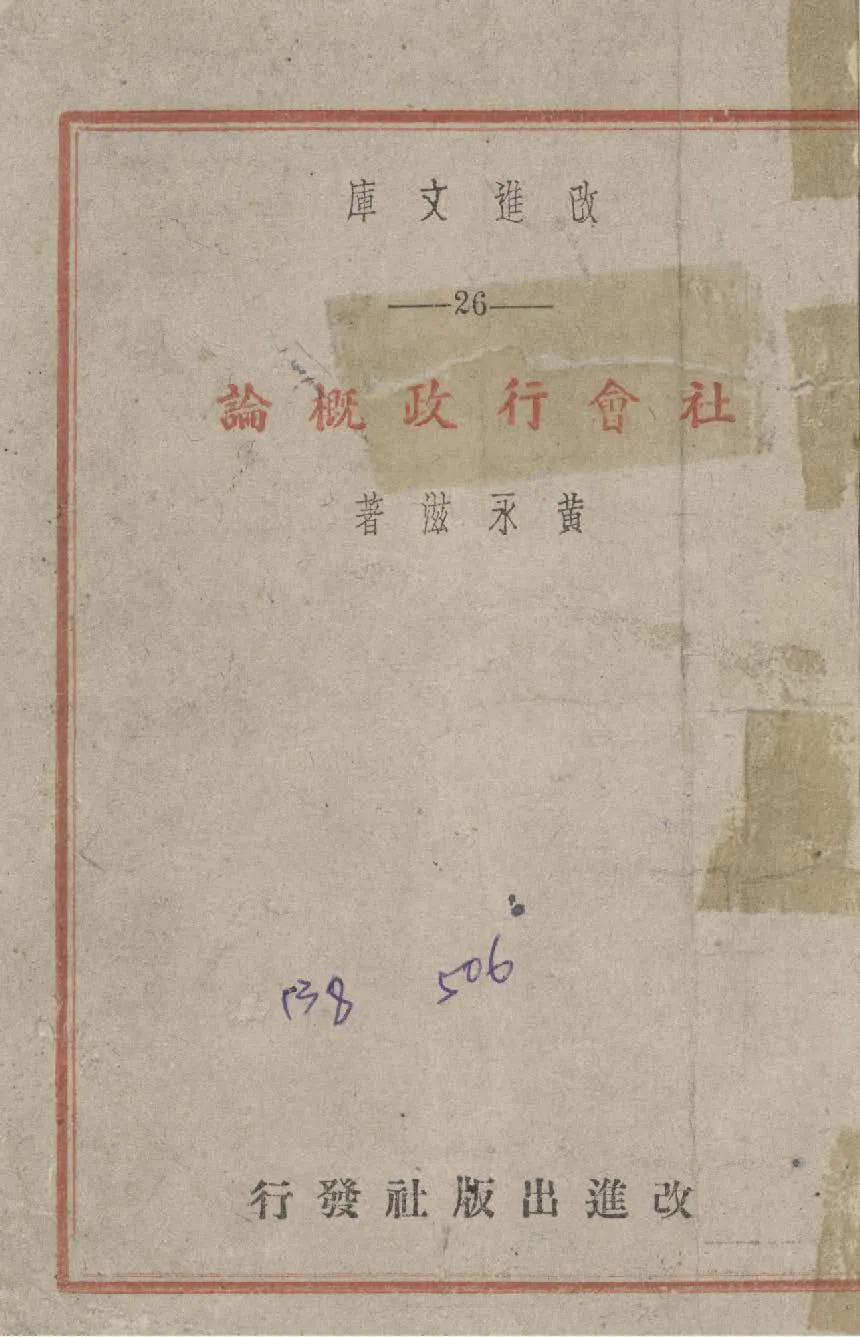 改進文庫
——26——
社會行政概論
黄永滋著
138 506
改進出版社發行